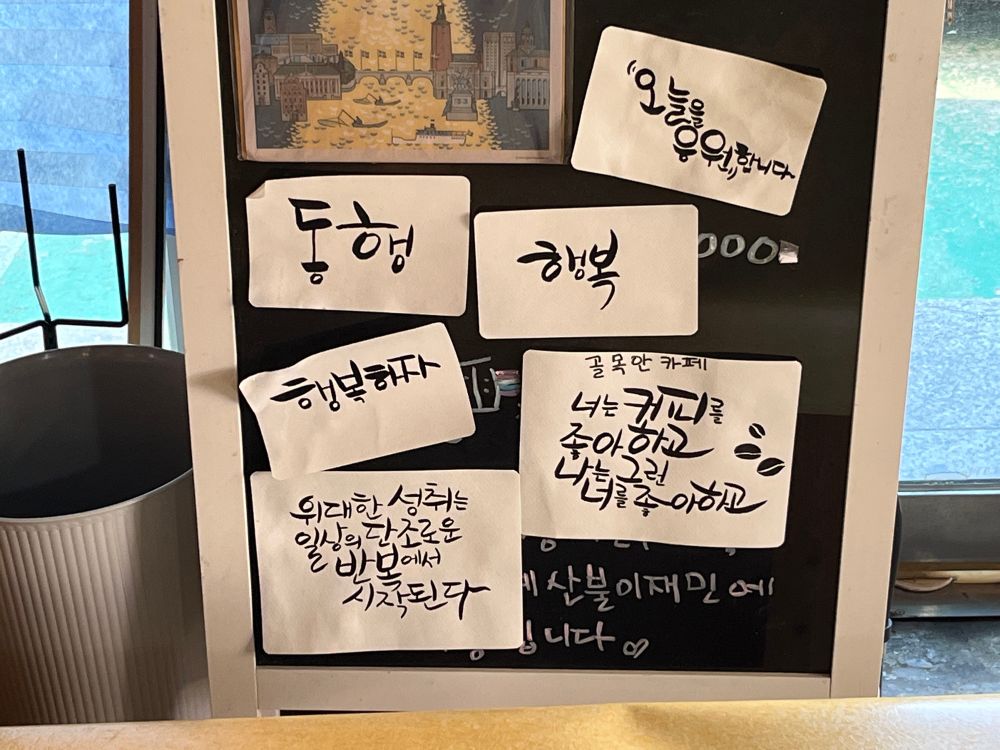 "오늘을
응원"합니다
동행
행복
000
행복하자
골목안 카페
너는 커피를
좋아하고
나는 그런
너를 좋아하고
위대한 성취는
일상의 단조로운
반복에서
시작된다
산불이재민에
입니다